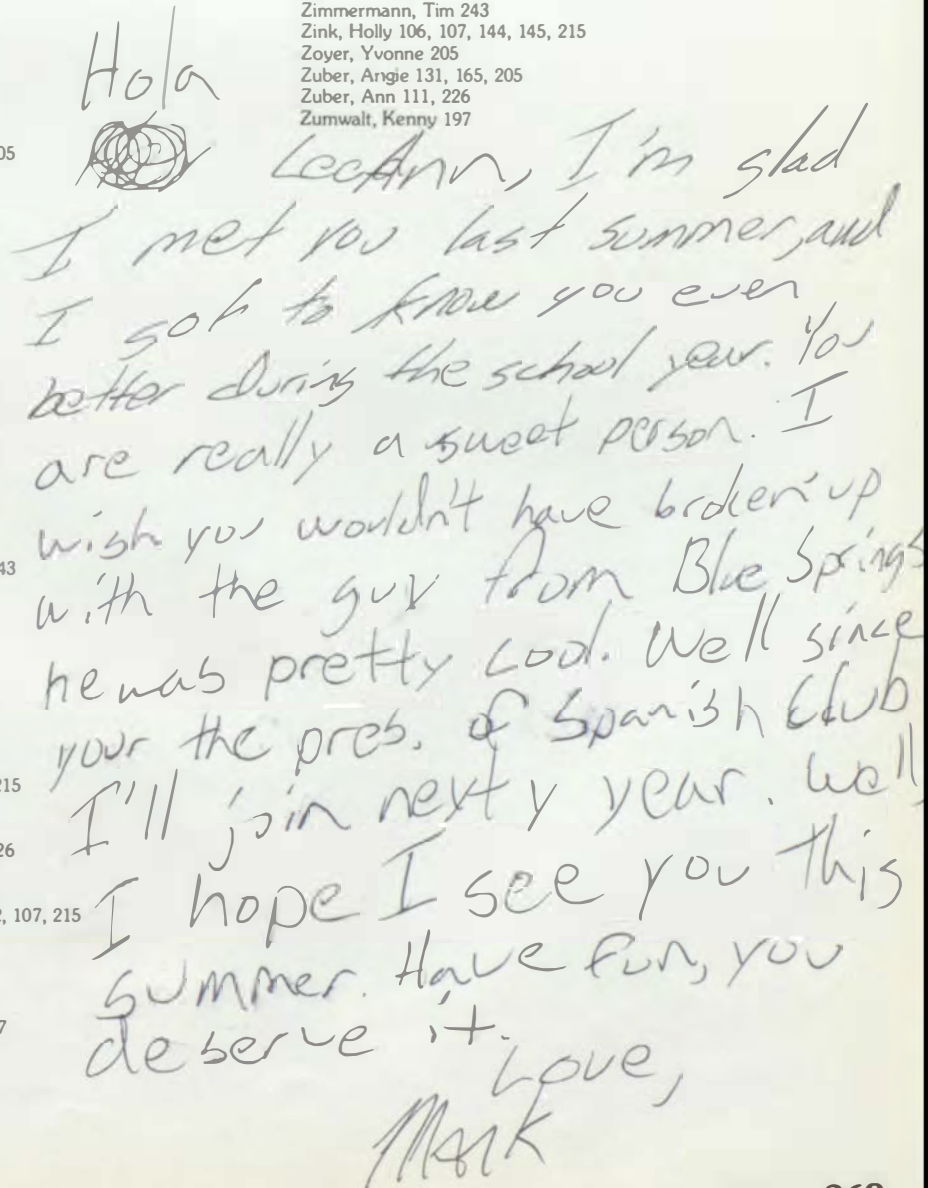 Zimmermann, Tim 243
Zink, Holly 106, 107, 144, 145, 215
Zoyer, Yvonne 205
Zuber, Angie 131, 165, 205
Zuber, Ann 111, 226
Zumwalt, Kenny 197
Hola
05
43
215
26
2, 107, 215
7
LeeAnn, I'm glad
I met you last summer, and
I got to know you even
better during the school year. You
are really a sweet person. I
wish you wouldn't have broken up
with the guy from Blue Springs
he was pretty cool. Well since
your the pres. of Spanish Club
I'll join nexty year. Well,
I hope I see you this
summer. Have fun, you
deserve it.
Love,
Mark